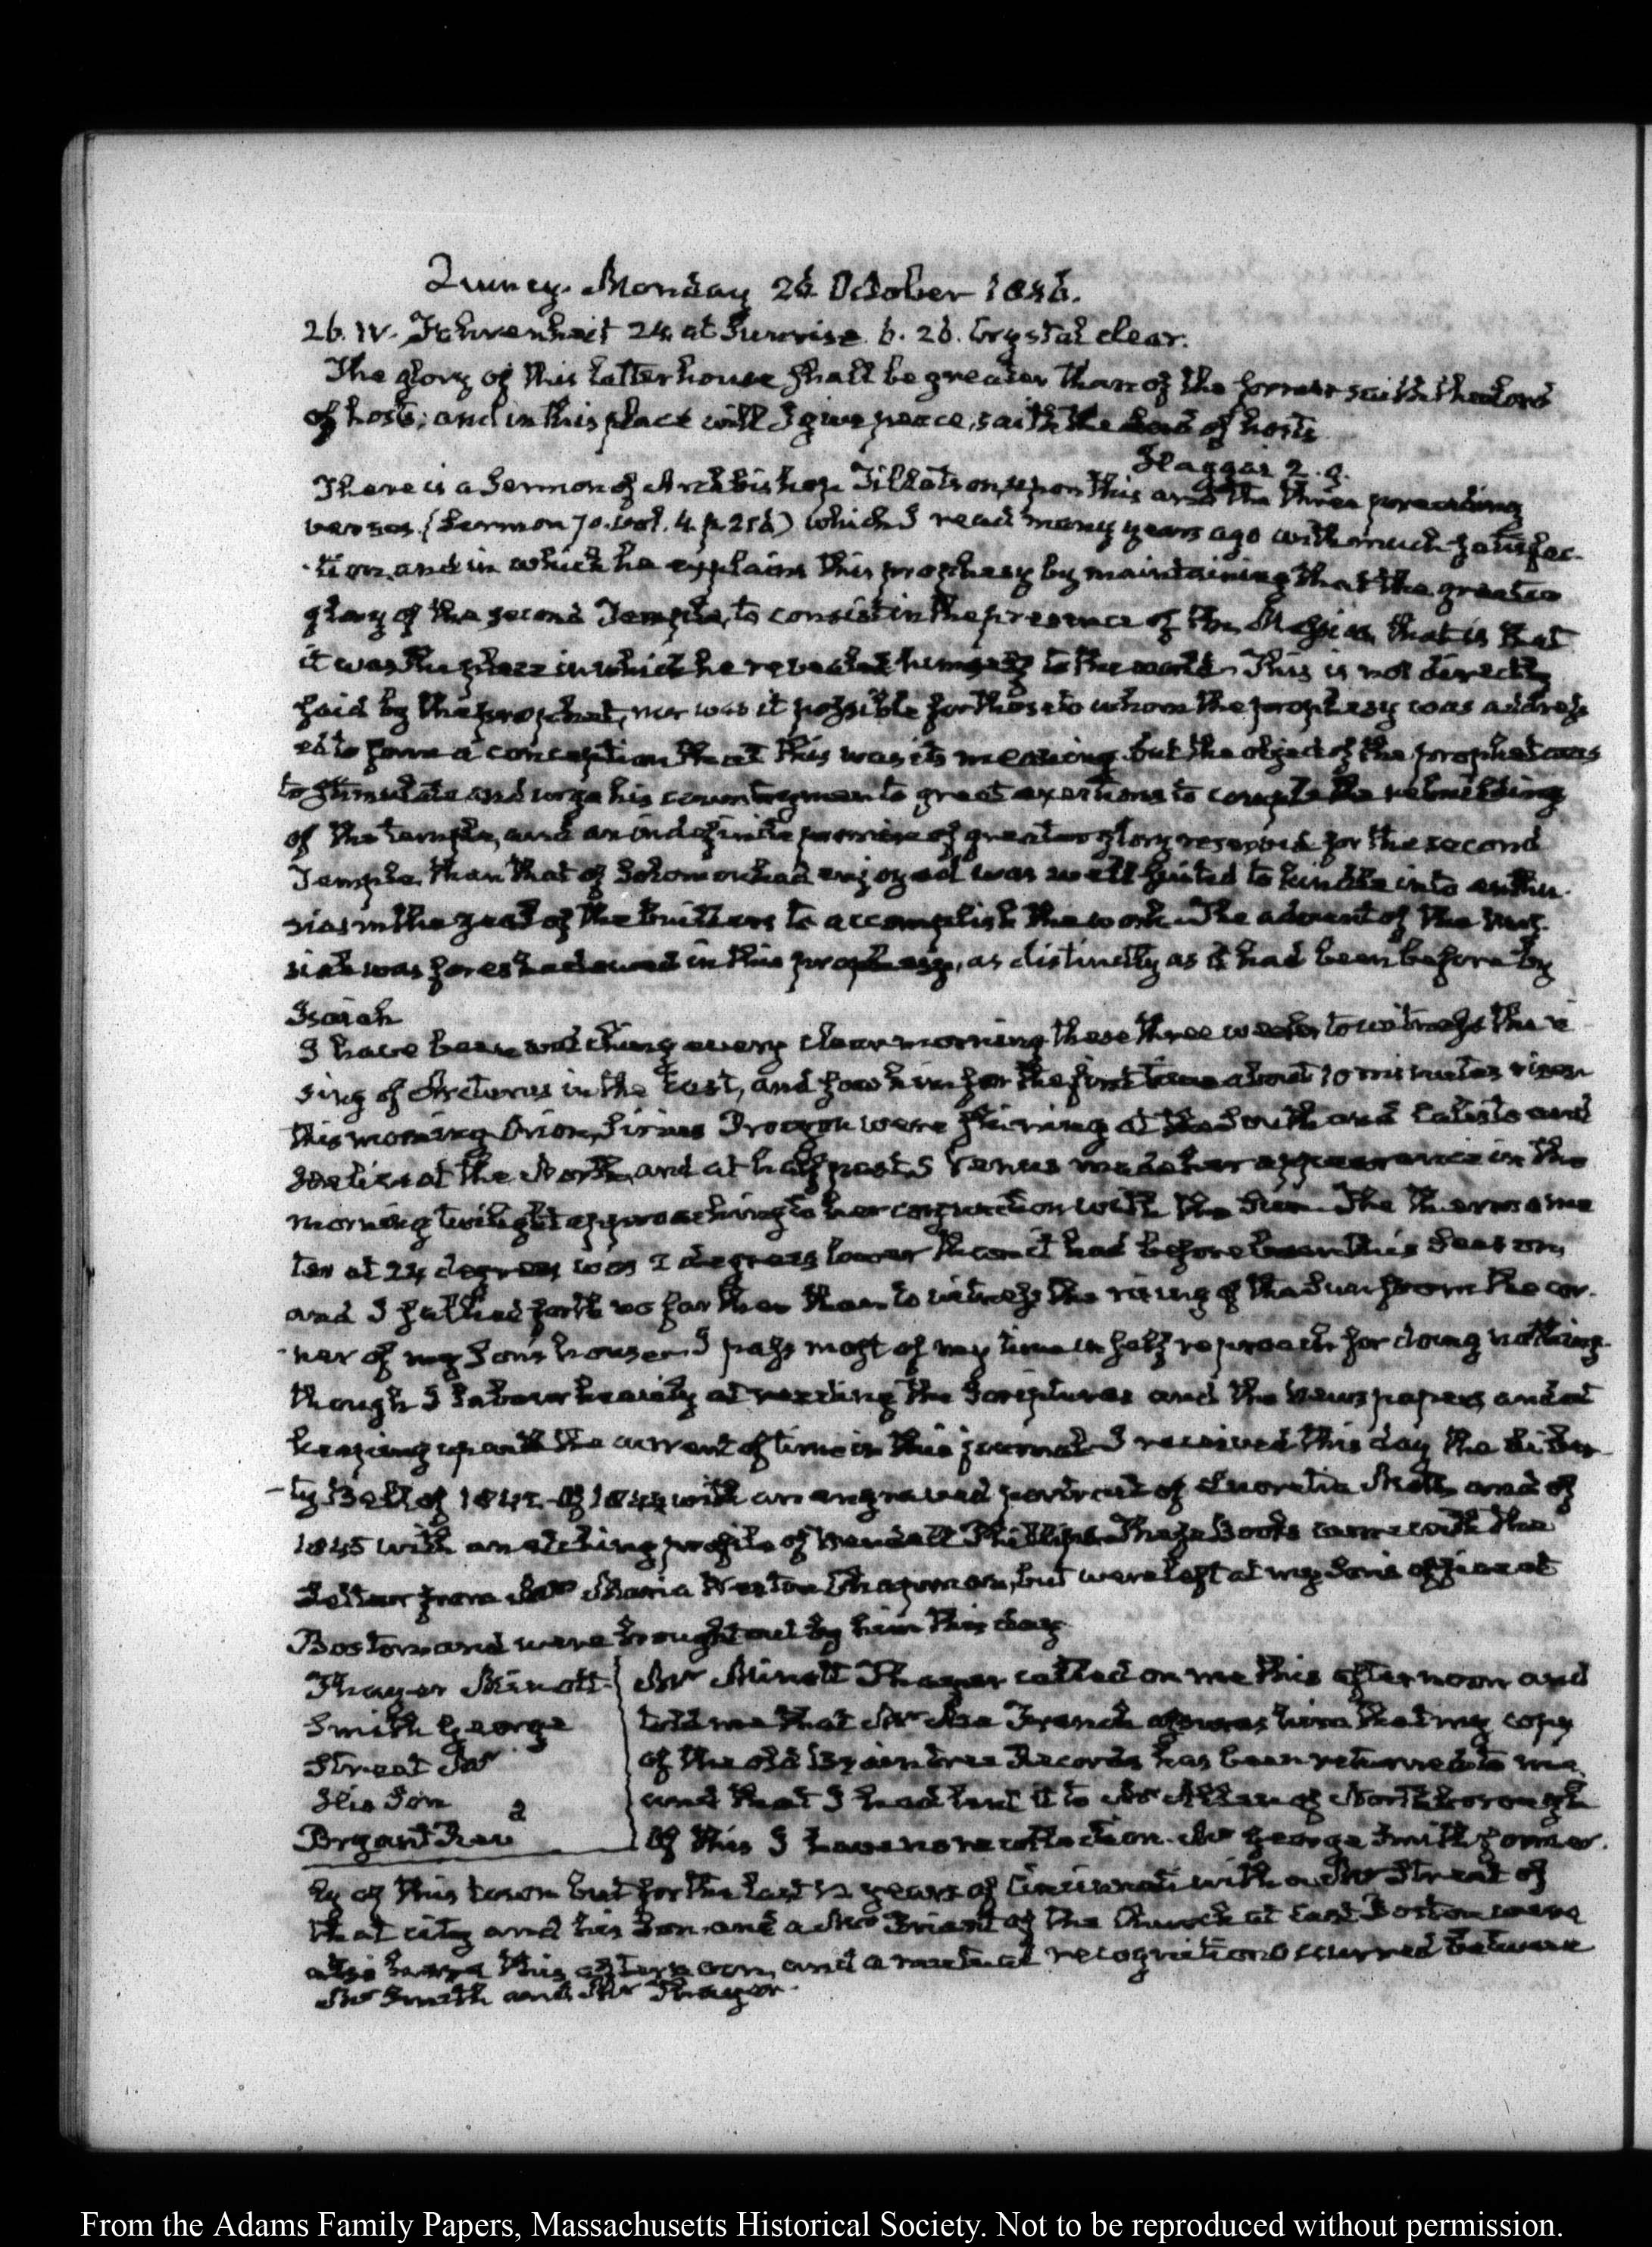 Quincy. Monday 26 October 1846.
26. IV. Fahrenheit 24. at Sunrise 6. 26. Crystal clear.
The glory of this latter house shall be greater than of the former saith the Lord
of hosts; and in this place will I give peace, saith the Lord of hosts
Haggai 2. 9.
There is a Sermon of Archbishop Tillotson, upon this and the three preceding
verses. (Sermon 70. vol. 4. p. 256) which I read many years ago with much satisfac-
-tion, and in which he explains this prophesy by maintaining that the greater
glory of the second Temple, to consist in the presence of the Messias, that is that
it was the place in which he revealed himself to the world. This is not directly
said by the prophet, nor was it possible for those to whom the prophesy was address
ed to form a conception that this was its meaning. but the object of the prophet was
to stimulate and urge his countrymen to great exertions to complete the rebuilding
of the temple, and an indefinite promise of greater glory reserved for the second
Temple, than that of Solomon had enjoyed was well suited to kindle into enthu-
siasm the zeal of the builders to accomplish the work. The advent of the Mes-
siah was foreshadowed in this prophesy, as distinctly as it had been before by
Isaiah
I have been watching every clear morning these three weeks to witness the ri
sing of Arcturus in the East, and saw him for the first time about 10 minutes risen
this morning. Orion, Sirius Procyon were shining at the South and
at the North, and at half past 5 Venus made her appearance in the
morning twilight approaching to her conjunction with the Sun. The thermome
ter at 24 degrees was 2 degrees lower than it had before been this Season,
and I sallied forth no farther than to witness the rising of the Sun from the cor-
-ner of my Son's house. I pass most of my time in self reproach for doing nothing
though I labour heavily at reading the Scriptures and the Newspapers and at
keeping up with the current of time in this journal. I received this day the Liber-
-ty Bell of 1842. of 1844 with an engraved portrait of Lucretia Mott and of
1845 with an etching profile of Wendell Phillips. These Books came with the
Letter from Mrs Maria Weston Chapman, but were left at my Son's office at
Boston and were brought out by him this day
Thayer Minott
Smith George
Streat Mr
His Son
Bryant Rev d
Mr Minott Thayer called on me this afternoon and
told me that Mr Asa French assures him that my copy
of the old Braintree Records has been returned to me,
and that I had lent it to Mr Allen of Northborough
Of this I have no recollection. Mr George Smith former-
ly of this town but for the last 12 years of Cincinnati with a Mr Streat of
that city and his Son and a Mr Briant of the Church at East Boston were
also here this afternoon, and a mutual recognition occurred between
Mr Smith and Mr Thayer.
From the Adams Family Papers, Massachusetts Historical Society. Not to be reproduced without permission.